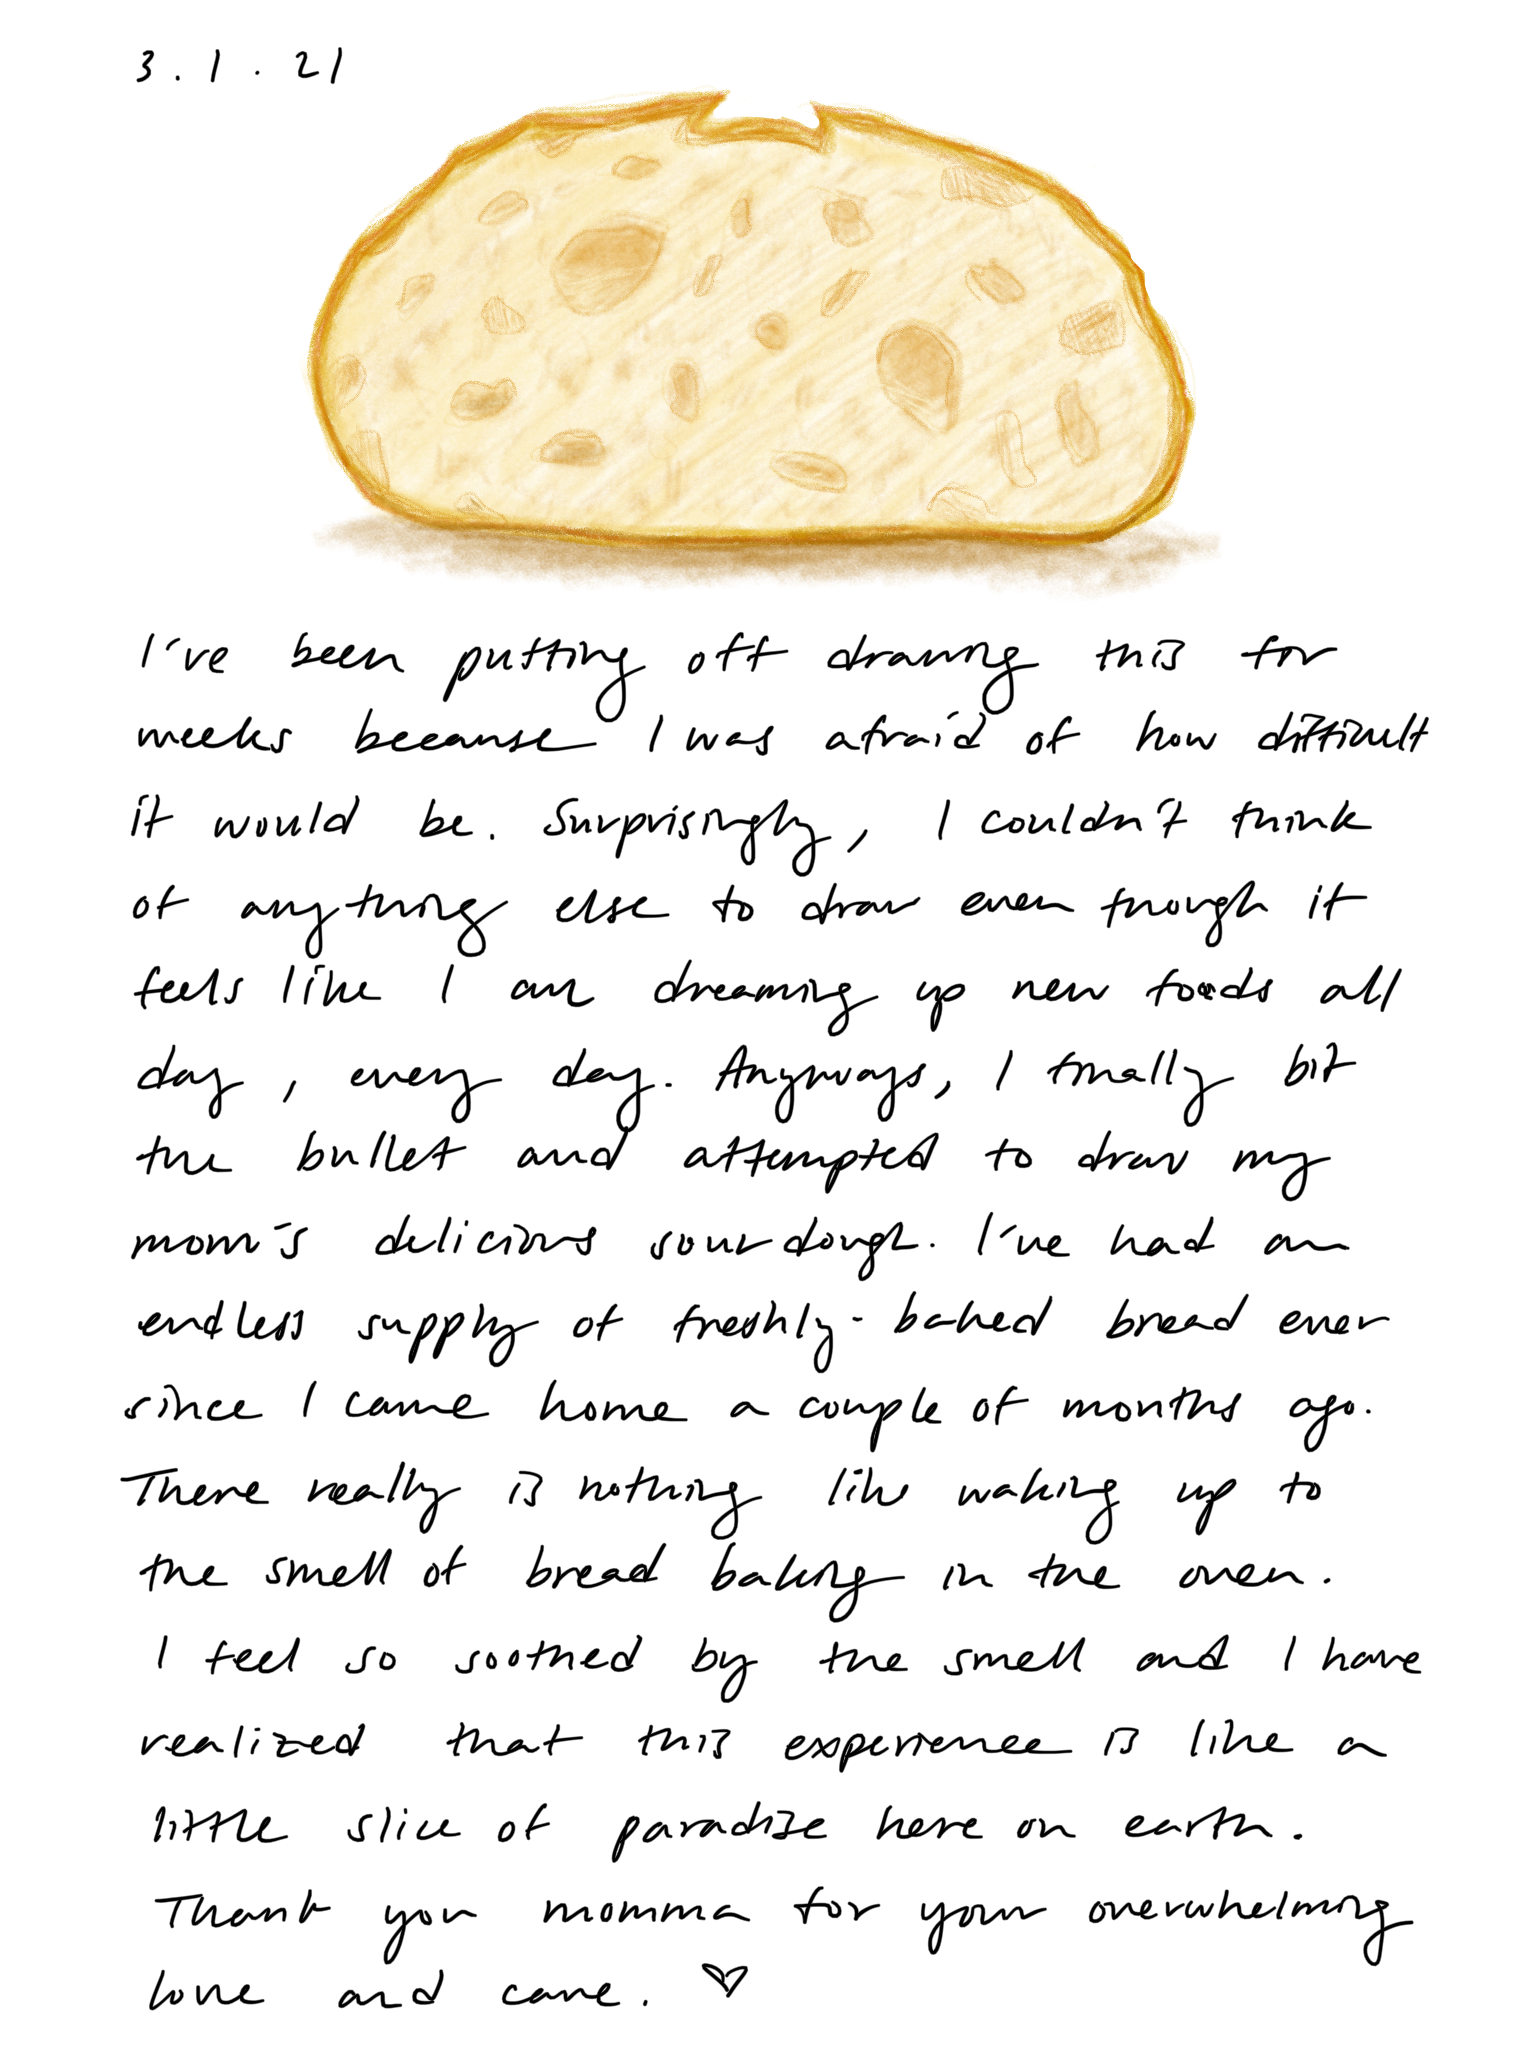 3.1.21
I've been putting off drawing this for
weeks because I was afraid of how difficult
it would be. Surprisingly, I couldn't think
of anything else to draw even though it
feels like I am dreaming up new foods all
day, every day. Anyways, I finally bit
the bullet and attempted to draw my
mom's delicious sourdough. I've had an
endless supply of freshly-baked bread ever
since I came home a couple of months ago.
There really is nothing like waking up to
the smell of bread baking in the oven.
I feel so soothed by the smell and I have
realized that this experience is like a
little slice of paradise here on earth.
Thank you momma for your overwhelming
love and care. ♡